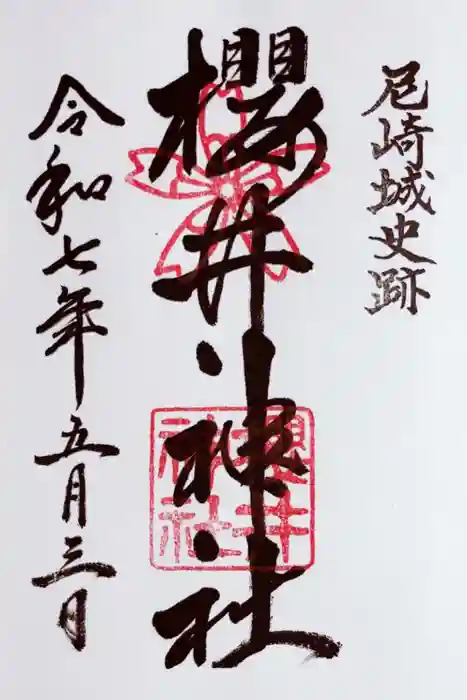 尼崎城史跡
櫻井神社
櫻井
神社
令和七年五月三日